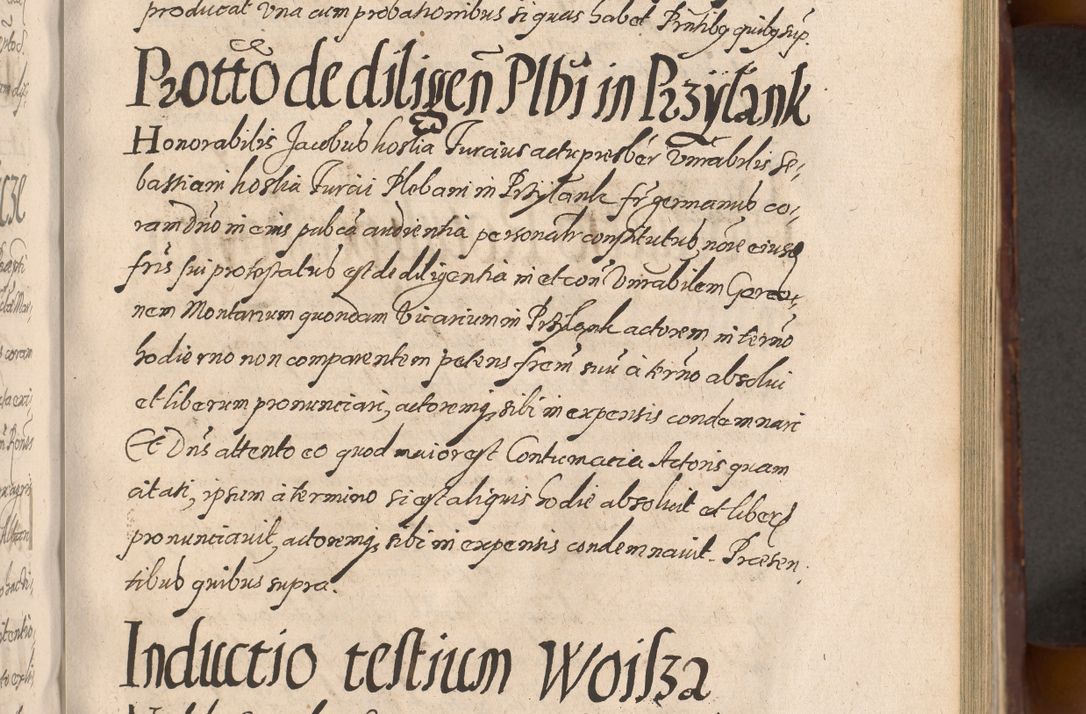 producat una cum probationibus si quas habet. Pntibq quibq sup.
Protto de diligen Plbi in Przyłank
Honorabilis Jacobus hostia Furcius actu presber Vnrabilis Se,
bastiani hostia Furcii Plebani in Przyłank fr germanus co,
ram Dno in eius pubca audientia personalr constitutus noie eiusd
fris sui protestatus est de diligentia in et con Vnrabilem Gereo,
nem Montanum quondam Vicarium in Przyłank actorem in terno
hodierno non comparentem petens frem suu a terno absolui
et liberum pronunciari, actoremq sibi in expensis condemnari
Et Dns attento eo quod maior est Contumacia Actoris quam
citati, ipsum a termino si est aliquis hodie absoluit et liberu
pronunciauit, actoremq sibi in expensis condemnauit. Præsen
tibus quibus supra.
Inductio testium Woisza